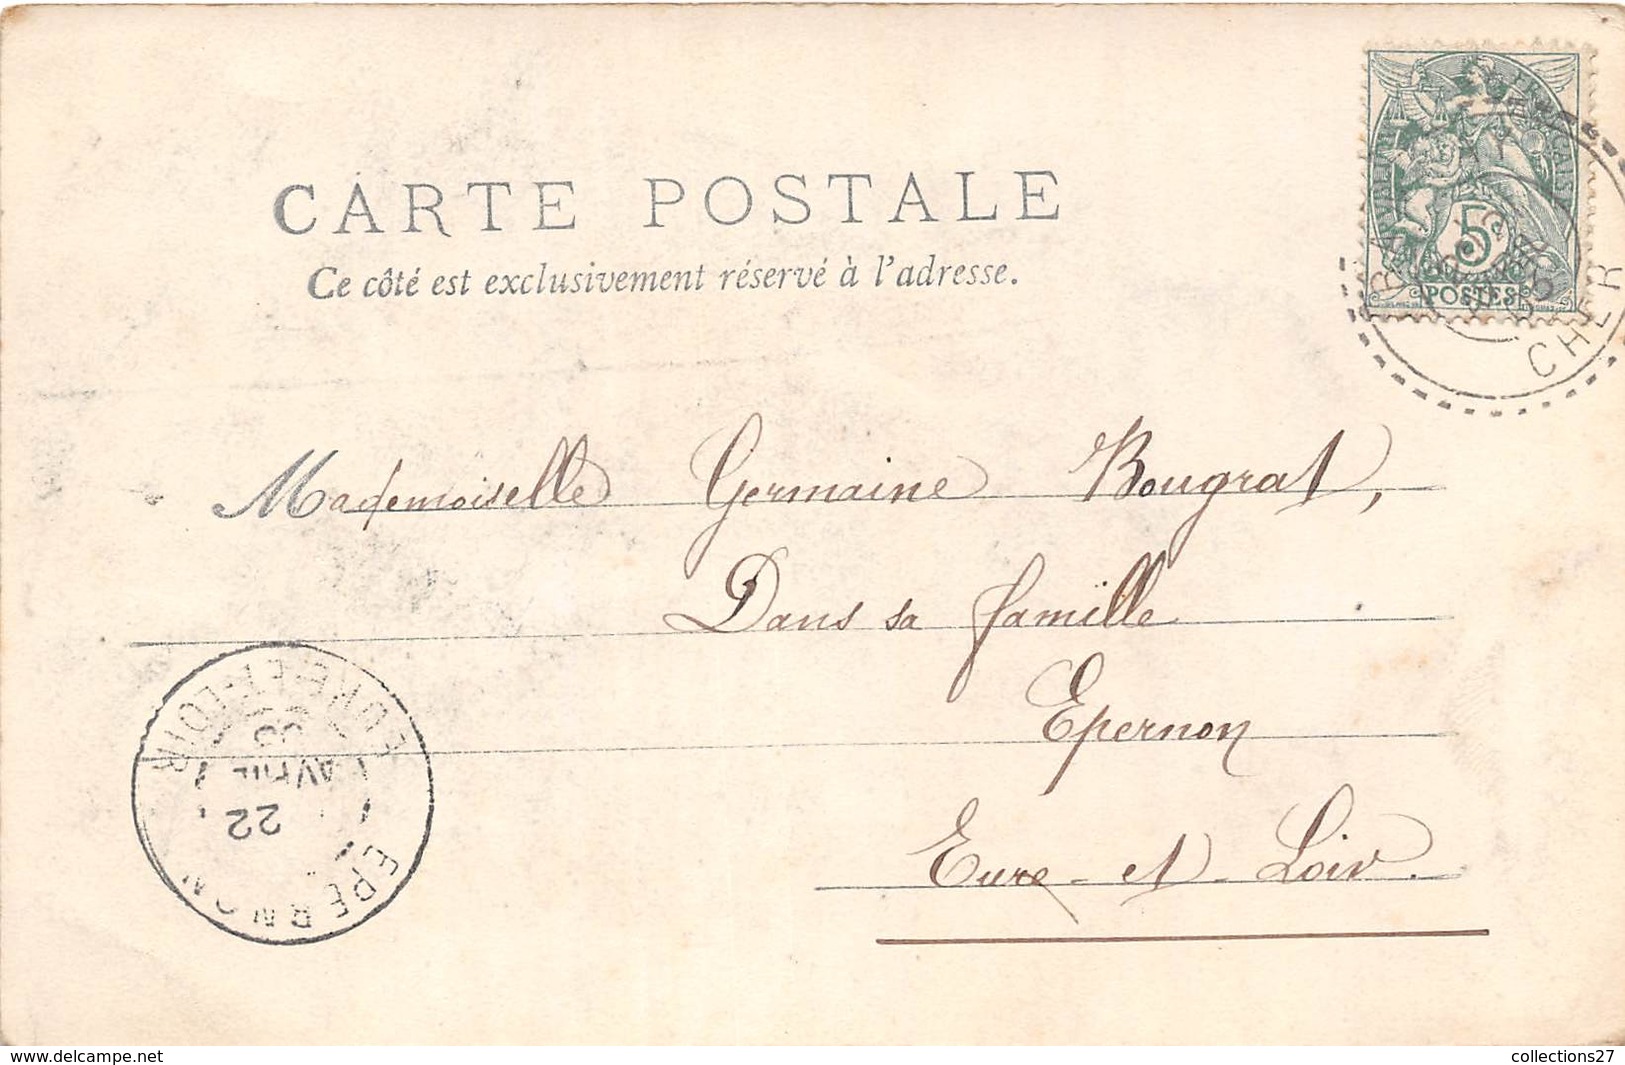 CARTE POSTALE
Ce côté est exclusivement réservé à l'adresse.
5
POSTES
CHER
Mademoiselle Germaine Bougrat,
Dans sa famille
Epernon
Eure-et-Loir.
EURE-ET-LOIR
AVRIL
22
EPERNON
www.delcampe.net
collections27